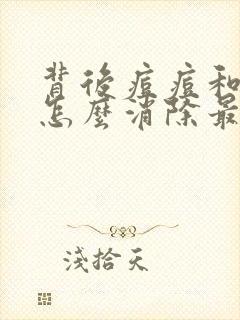 背後痘痘和
怎麼消除最
淺拾天